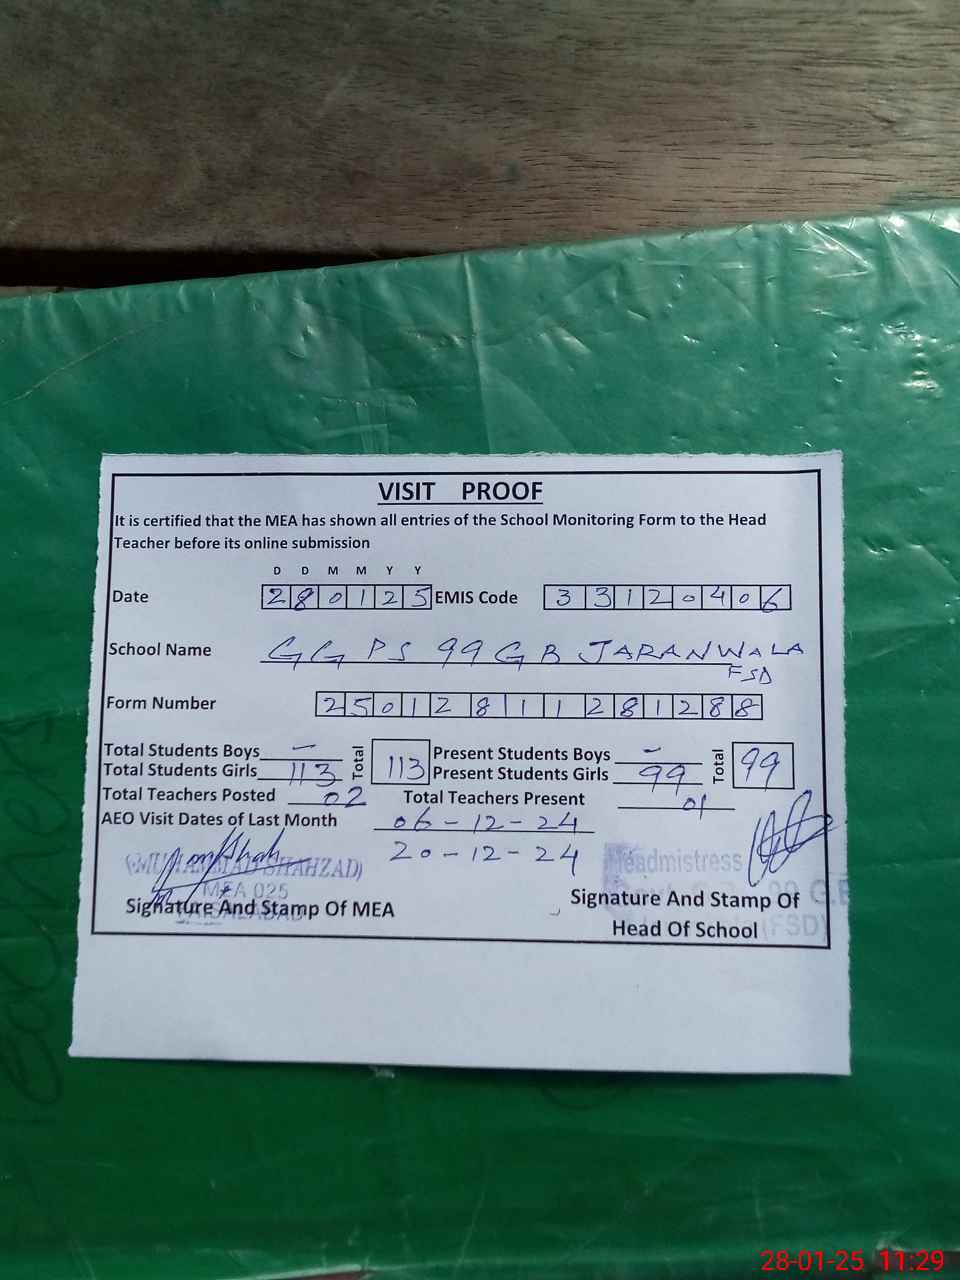 VISIT PROOF
It is certified that the MEA has shown all entries of the School Monitoring Form to the Head
Teacher before its online submission
D D M M Y Y
Date 280125 EMIS Code 33120406
School Name GGPS 99 GB JARANWALA
FSD
Form Number 250128111281288
Total Students Boys - Total 113 Present Students Boys - Total 99
Total Students Girls 113 Present Students Girls 99
Total Teachers Posted 02 Total Teachers Present 01
AEO Visit Dates of Last Month 06-12-24
20-12-24
(MUHAMMAD SHAHZAD) Headmistress
MEA 025
FAISALABAD
Signature And Stamp Of MEA Signature And Stamp Of
Head Of School (FSD)
28-01-25 11:29